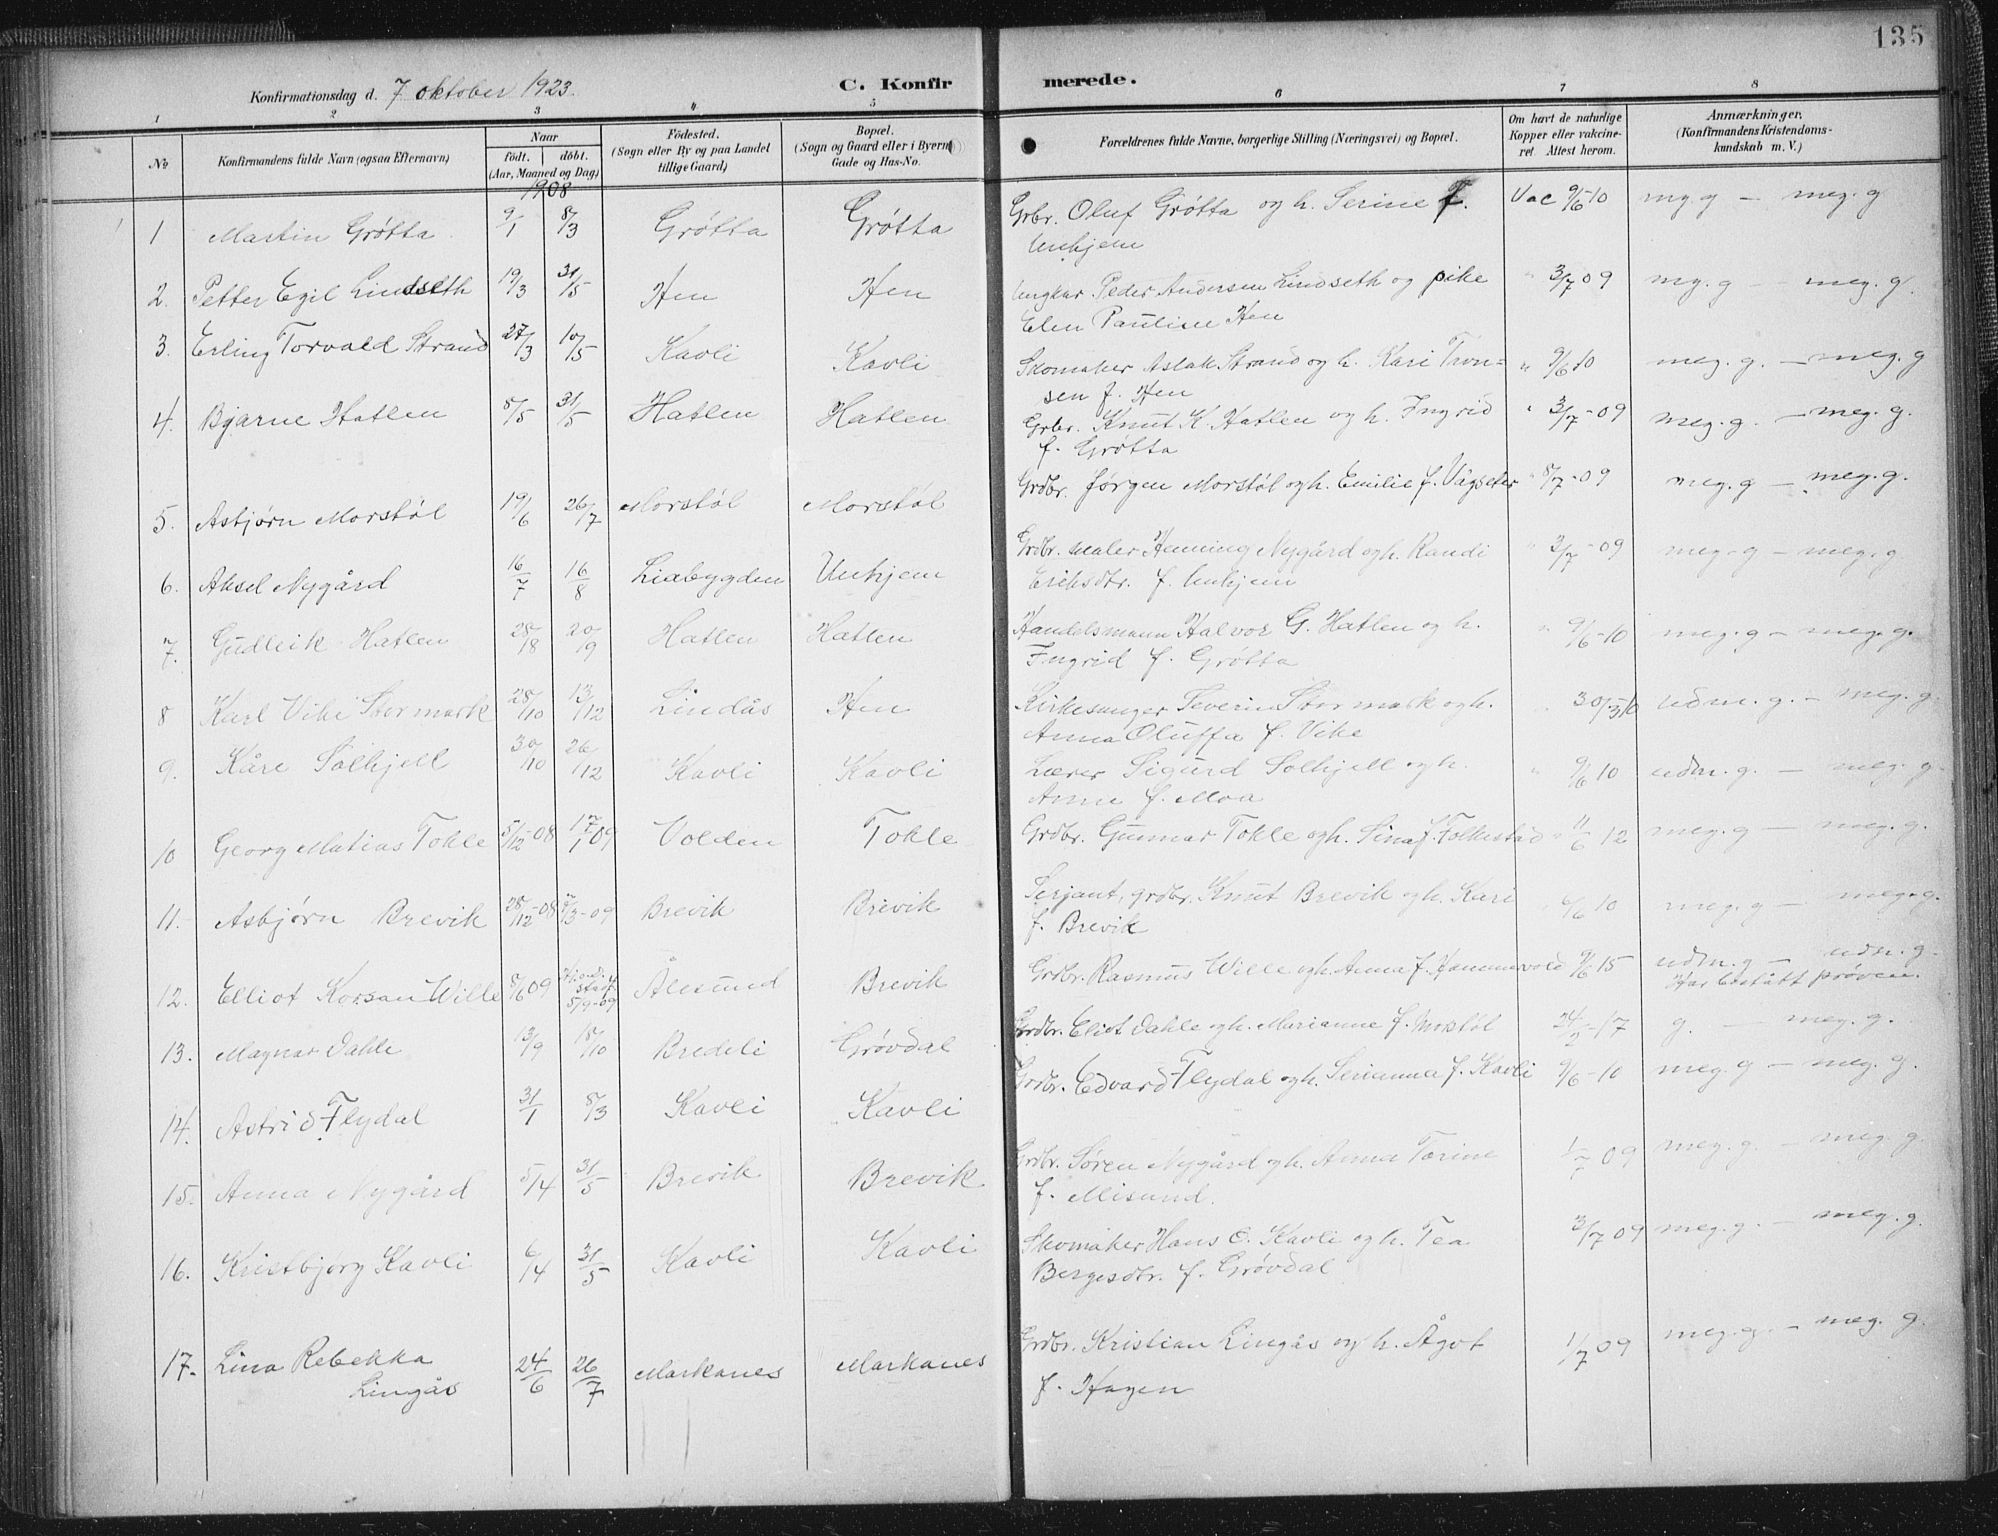 135
Konfirmationsdag d. 7 oktober 1923.
C. Konfirmerede.
1 2 3 4 5 6 7 8
No
Konfirmandens fulde Navn (ogsaa Efternavn)
Naar
født. døbt.
(Aar, Maaned og Dag)
1908
Födested.
(Sogn eller By og paa Landet
tillige Gaard)
Bopæl.
(Sogn og Gaard eller i Byern
Gade og Hus-No.
Forældrenes fulde Navne, borgerlige Stilling (Næringsvei) og Bopæl.
Om havt de naturlige
Kopper eller vakcine-
ret. Attest herom.
Anmærkninger.
(Konfirmandens Kristendoms-
kundskab m. V.)
1 Martin Grøtta 9/1 8/3 Grøtta Grøtta Grbr. Oluf Grøtta og h. Serine f. Vac 9/6 10 mg. g – meg. g
Unhjem
2. Petter Egil Lindseth 19/3 31/5 Hen Hen Ungkar Peder Andersen Lindseth og pike " 3/7 09 mg. g – meg. g.
Elen Pauline Hen
3. Erling Torvald Strand 27/3 10/5 Kavli Kavli Skomaker Aslak Strand og h. Kari Tron- " 9/6 10 meg. g. – meg. g
sen f. Hen
4. Bjarne Hatlen 8/5 31/5 Hatlen Hatlen Grbr. Knut K. Hatlen og h. Ingrid " 3/7-09 meg. g. – meg. g.
f. Grøtta
5. Asbjørn Morstøl 19/6 26/7 Morstøl Morstøl Grdbr. Jørgen Morstøl og h. Emilie f. Vågseter " 8/7-09 meg. g – meg. g.
6. Aksel Nygård 16/7 16/8 Liabygden Unhjem Grdbr. maler Henning Nygård og h. Randi " 3/7-09 meg. g – meg. g
Eriksdtr. f. Unhjem
7. Gudleik Hatlen 28/8 20/9 Hatlen Hatlen Handelsmann Halvor G. Hatlen og h. " 9/6-10 meg. g – meg. g.
Ingrid f. Grøtta
8 Karl Vike Stormark 28/10 13/12 Lindås Hen Kirkesanger Severin Stormark og h. 30/3 10 udm. g. – meg. g.
Anna Oluffa f. Vike
9. Kåre Solhjell 30/10 26/12 Kavli Kavli Lærer Sigurd Solhjell og h. " 9/6 10 udm. g. – meg. g.
Anne f. Moa
10 Georg Matias Tokle 5/12-08 17/1 09 Volden Tokle Grdbr. Gunnar Tokle og h. Sina f. Folkestad " 11/6 12 meg. g – meg. g.
11. Asbjørn Brevik 28/12-08 /3-09 Brevik Brevik Serjant, grdbr. Knut Brevik og h. Kari /6 10 meg. g – meg. g.
f. Brevik
12. Elliot Korsan Wille 8/6 09 5/9-09 Ålesund Brevik Grdbr. Rasmus Wille og h. Anna f. Hammervold 9/6 15 udm. g – udm. g.
Har bestått prøven.
13. Magnar Dahle 13/9 18/10 Bredeli Grøvdal Grdbr. Eliot Dahle og h. Marianne f. Morstøl 24/2-17 g. meg. g.
14. Astrid Flydal 31/1 8/3 Kavli Kavli Grdbr. Edvard Flydal og h. Serianna f. Kavli 9/6-10 meg. g – meg. g.
15. Anna Nygård 5/4 31/5 Brevik Brevik Grdbr. Søren Nygård og h. Anna Tærine 1/7 09 meg. g. – meg. g.
f. Misund.
16. Kristbjørg Kavli 6/4 31/5 Kavli Kavli Skomaker Hans O. Kavli og h. Tea 3/7 09 meg. g. – meg. g.
Bergesdtr. f. Grøvdal
17. Lina Rebekka 24/6 26/7 Markanes Markanes Grdbr. Kristian Lingås og h. Ågot 1/7 09 meg. g. – meg. g.
Lingås f. Hagen